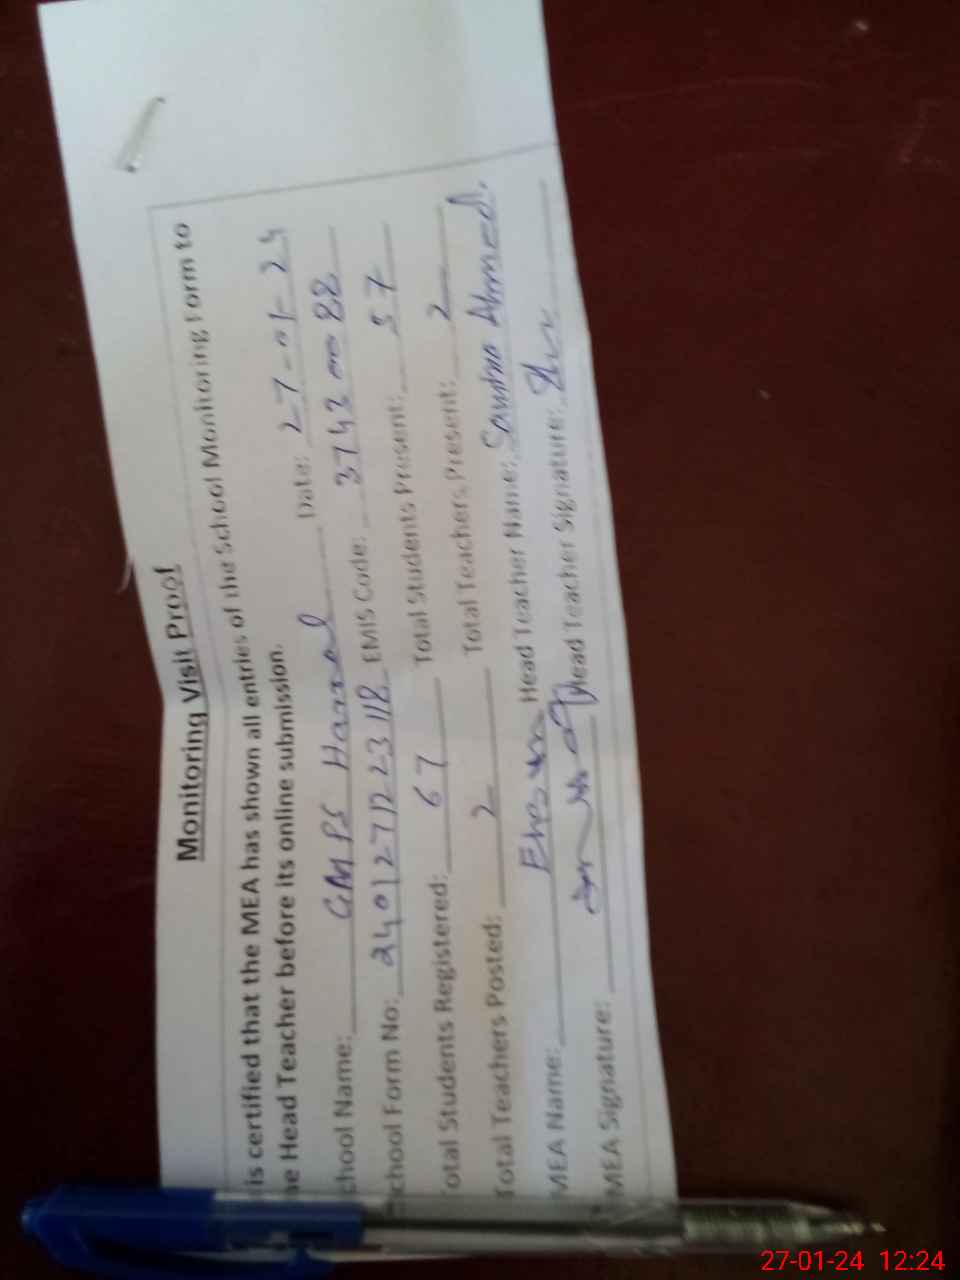 Monitoring Visit Proof
is certified that the MEA has shown all entries of the School Monitoring Form to
he Head Teacher before its online submission.
chool Name: GMPS Harnal Date: 27-01-24
chool Form No: 2401271223118 EMIS Code: 37430088
otal Students Registered: 67 Total Students Present: 57
Total Teachers Posted: 2 Total Teachers Present: 2
MEA Name: Head Teacher Name: Ahmed.
MEA Signature: Head Teacher Signature:
27-01-24 12:24